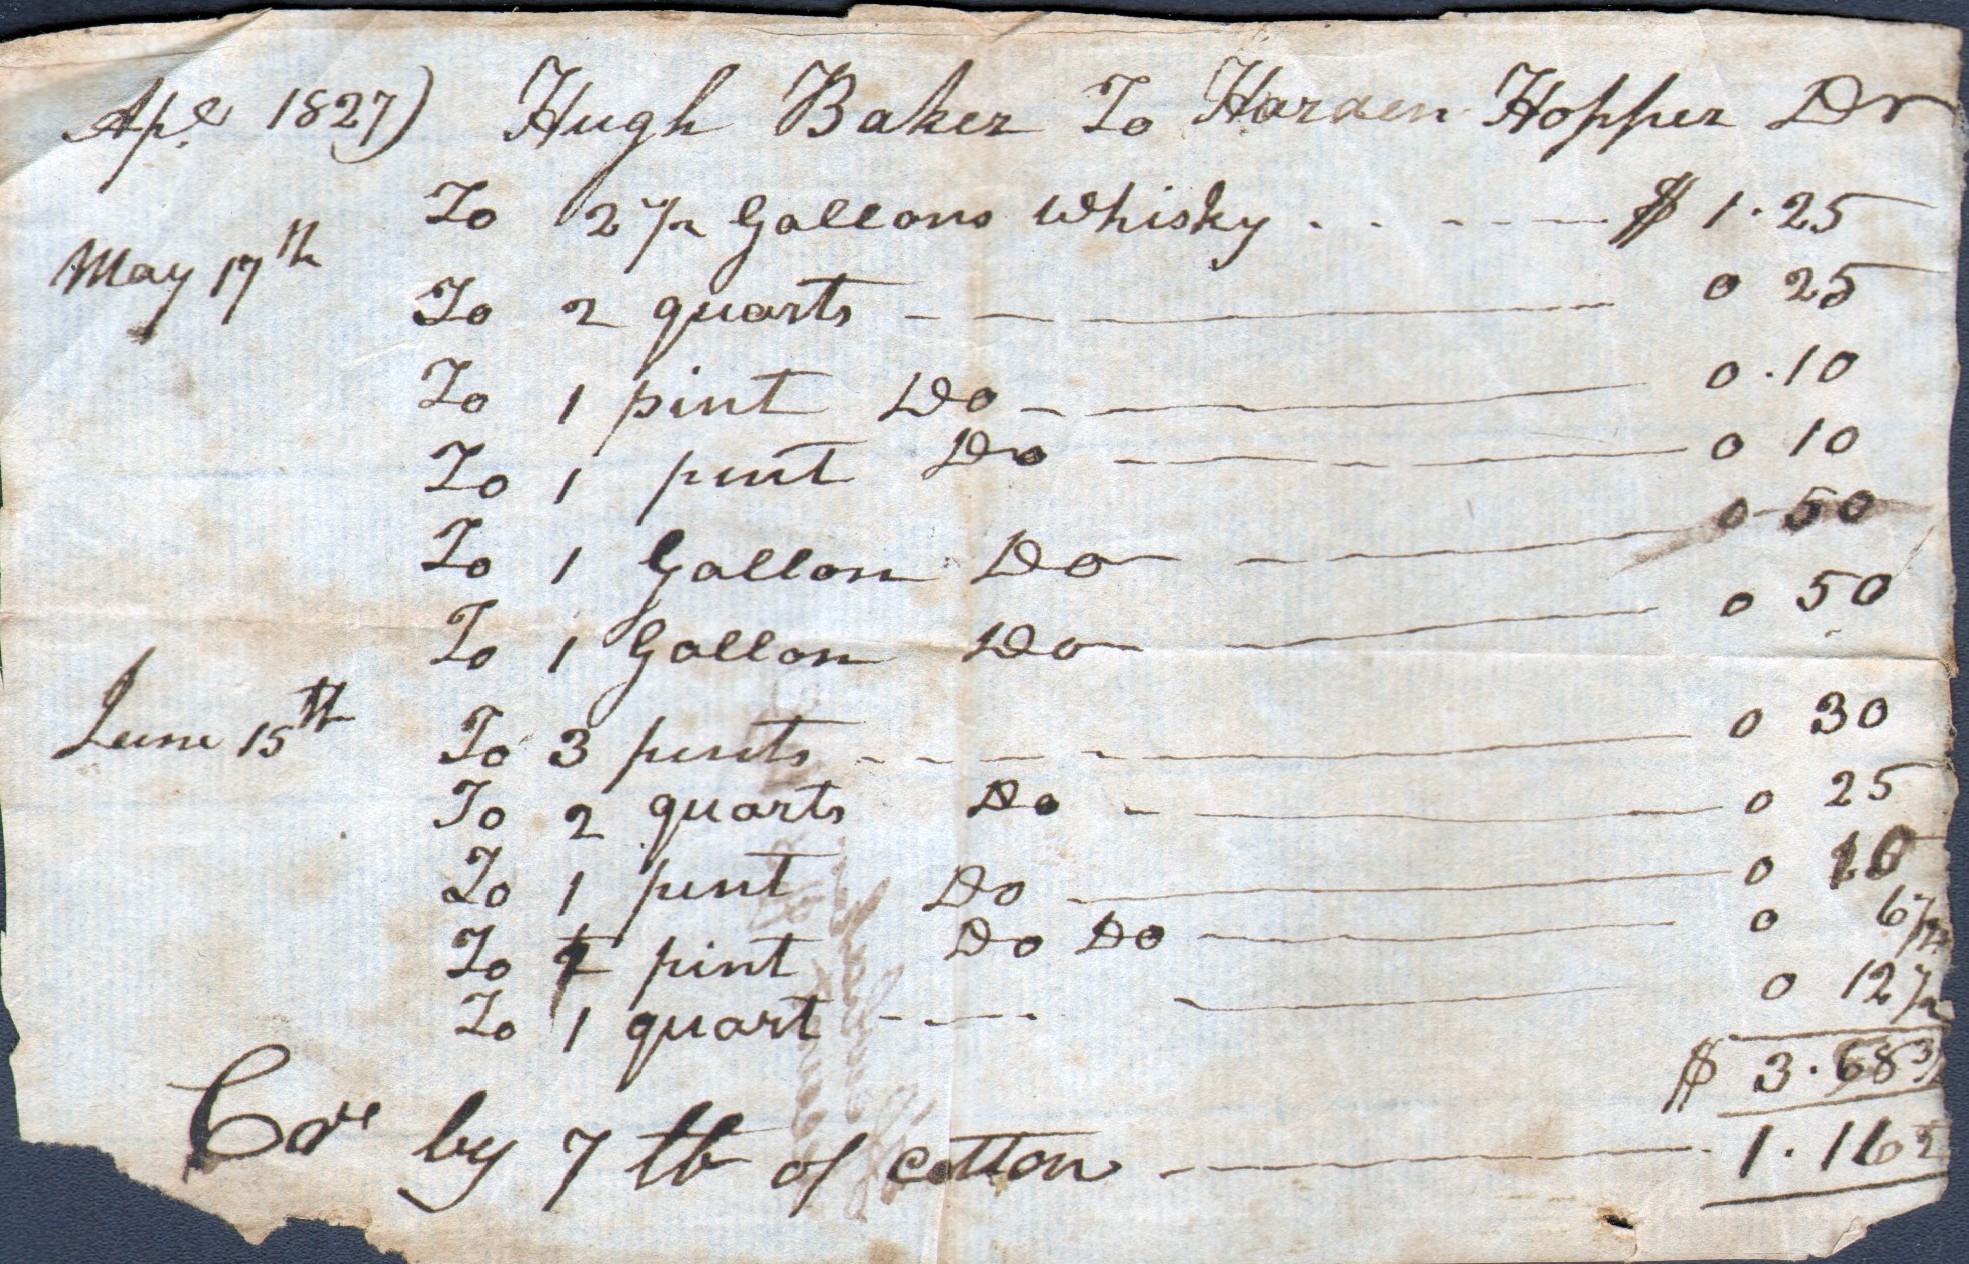 Apl 1827) Hugh Baker To Harden Hopper Dr
To 2 1/2 Gallons Whisky . . - - - $ 1.25
May 17th To 2 quarts - - - 0 25
To 1 pint Do - - - 0.10
To 1 pint Do - - - 0 10
To 1 Gallon Do - - - 0 50
To 1 Gallon Do - - - 0 50
June 15th To 3 pints - - - 0 30
To 2 quarts Do - - - 0 25
To 1 pint Do - - - 0 10
To 1 pint Do Do - - - 0 6 1/2
To 1 quart - - - 0 12 1/2
$ 3.68 3/4
Cr by 7 lb of cotton - - - 1.16